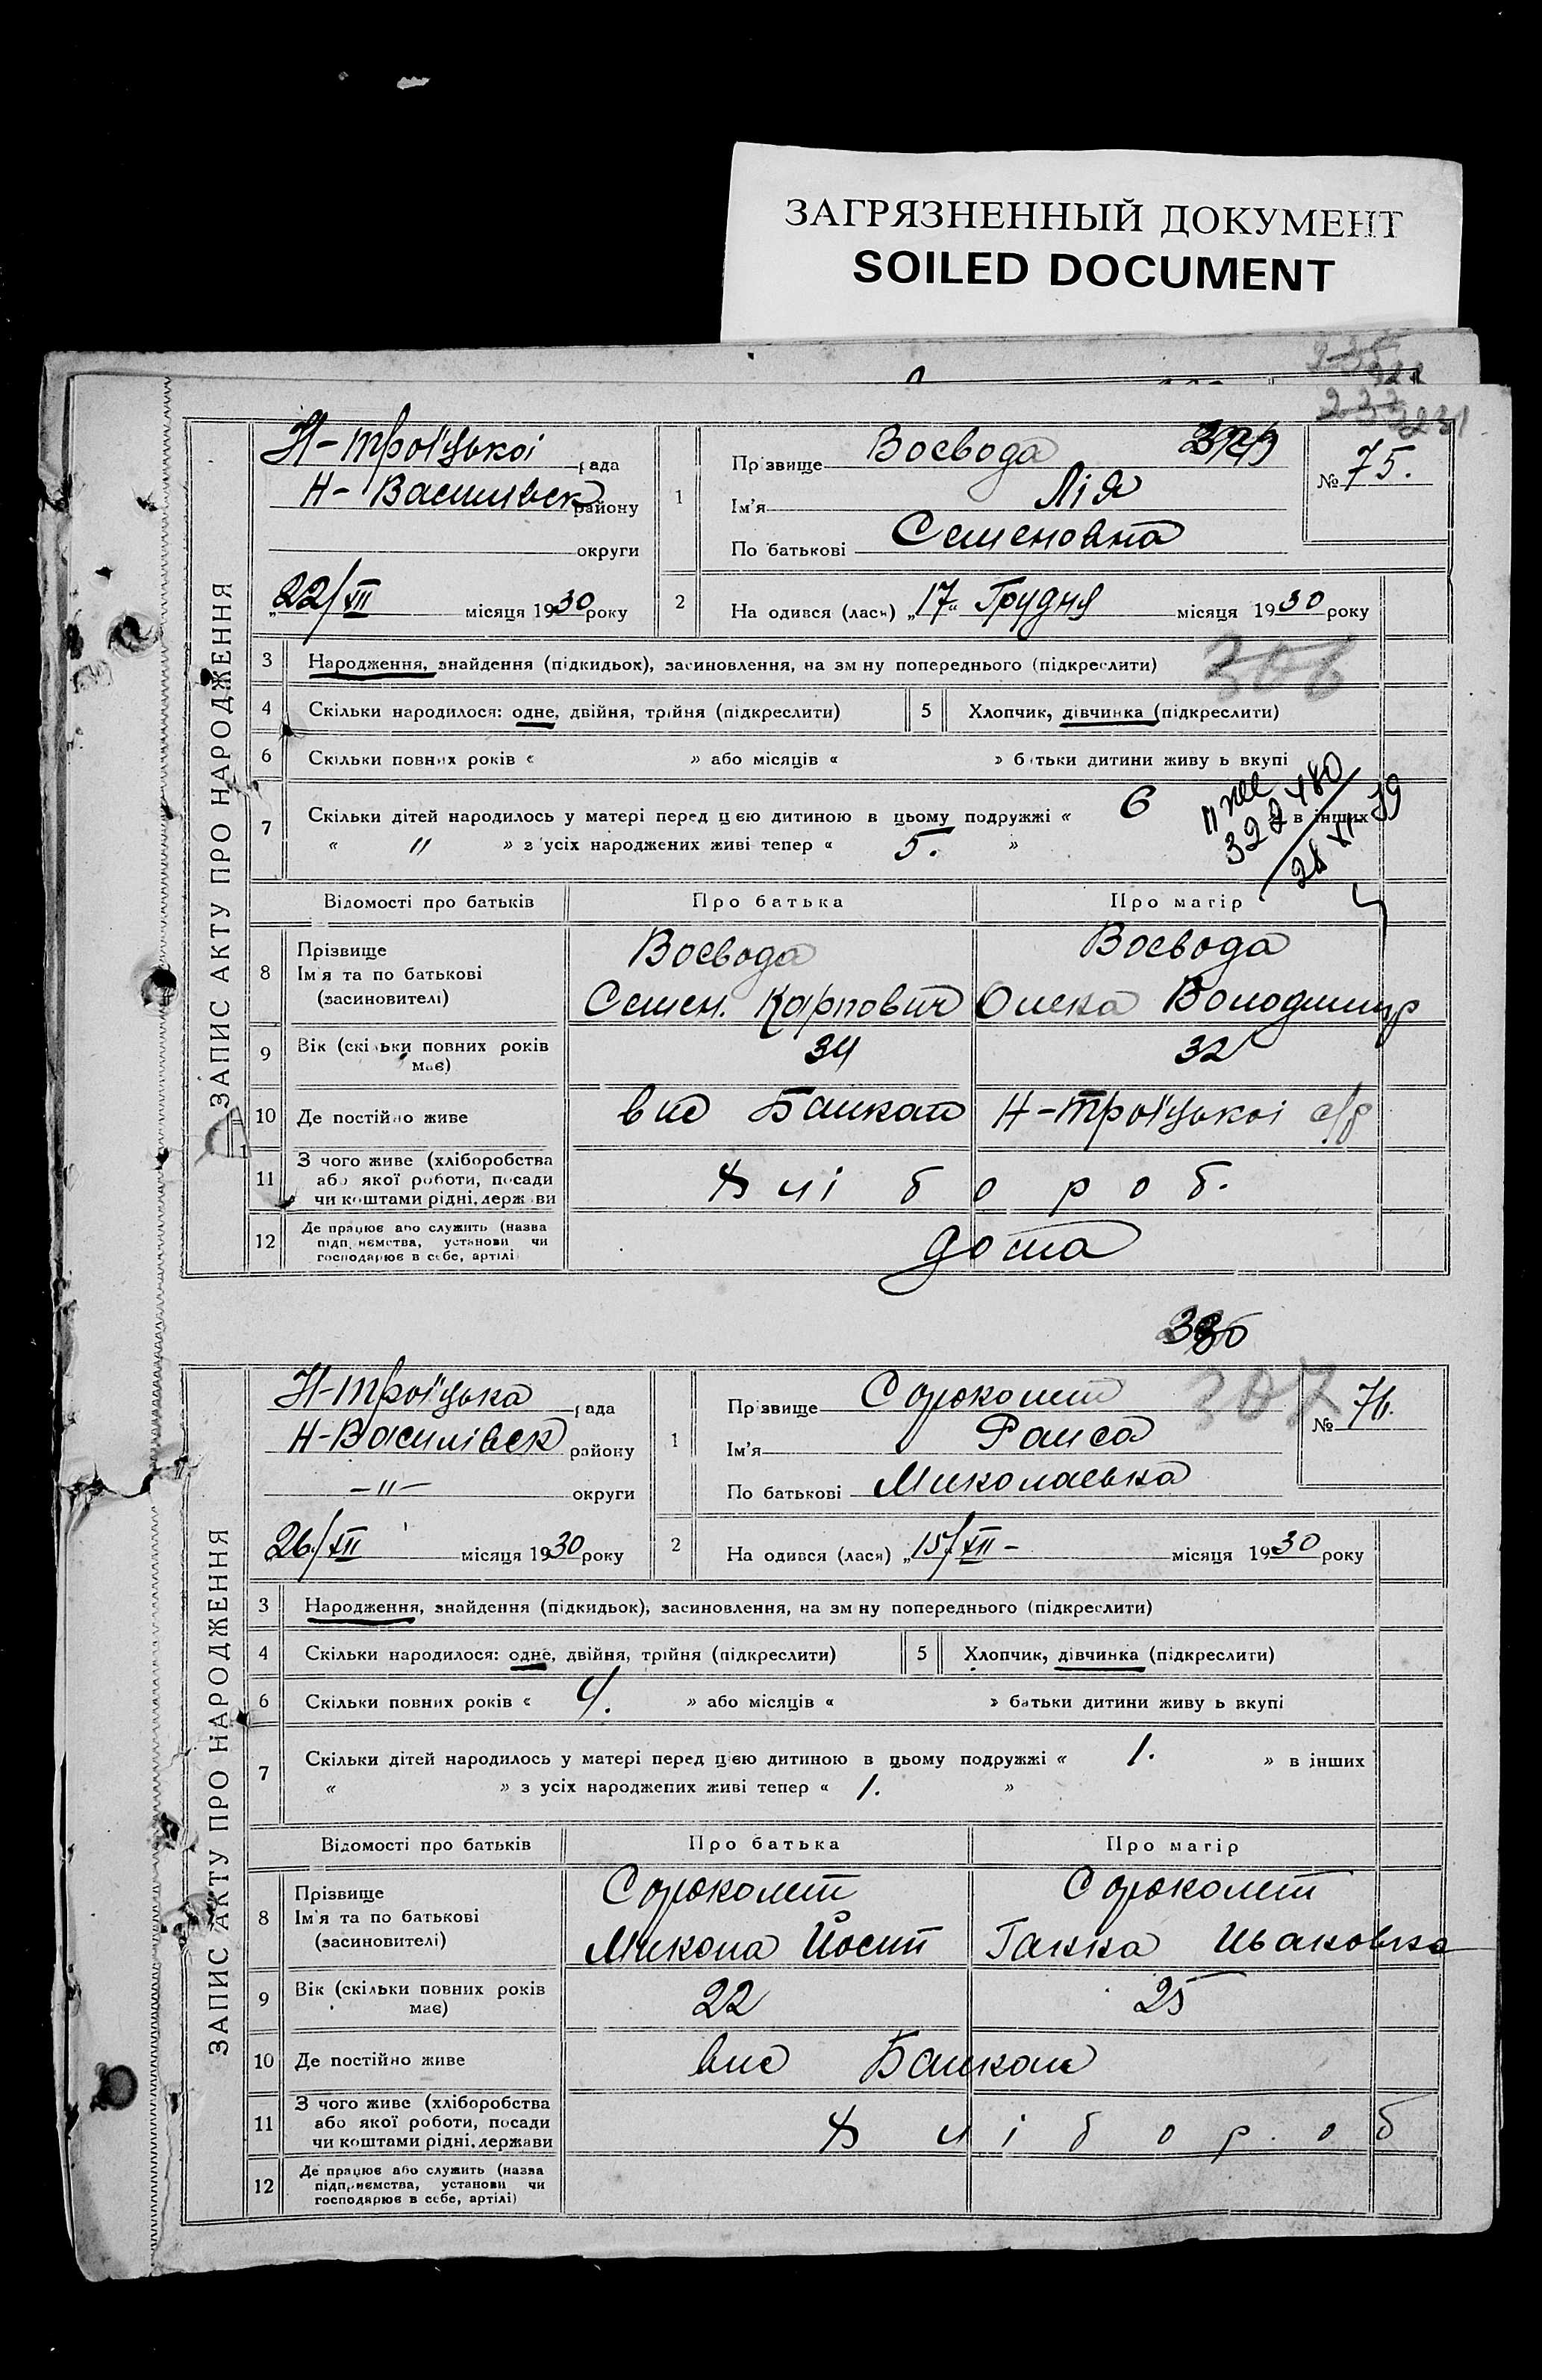 ЗАГРЯЗНЕННЫЙ ДОКУМЕНТ
SOILED DOCUMENT
ЗАПИС АКТУ ПРО НАРОДЖЕННЯ
Н-Троїцької рада
Н-Василівск району
округи
22/XII місяця 1930 року
1
Прізвище Воєвода
Ім'я Лія
По батькові Семеновна
№ 75.
2
На одився (лася) „17" Грудня місяця 1930 року
3 Народження, знайдення (підкидьок), засиновлення, на зм ну попереднього (підкреслити)
306
4 Скільки народилося: одне, двійня, трійня (підкреслити)
5 Хлопчик, дівчинка (підкреслити)
6 Скільки повних років « » або місяців « » б тьки дитини живу ь вкупі
7 Скільки дітей народилось у матері перед цією дитиною в цьому подружжі « 6 в інших
« " » з усіх народжених живі тепер « 5. »
Відомості про батьків Про батька Про матір
8 Прізвище
Ім'я та по батькові
(засиновителі)
Воєвода
Семен. Карпович
Воєвода
Олека Володимир
9 Вік (скільки повних років
має)
34 32
10 Де постійно живе
вис Балкат Н-Троїцької с/р
11 З чого живе (хліборобства
або якої роботи, посади
чи коштами рідні, держ ви
Хлібороб.
12 Де працює або служить (назва
підп иємства, установи чи
господарює в себе, артілі
дома
330
ЗАПИС АКТУ ПРО НАРОДЖЕННЯ
Н-Троїцька рада
Н-Василівск району
-"- округи
26/XII місяця 1930 року
1
Прізвище Сороколет
Ім'я Раиса
По батькові Миколаевна
307
№ 76.
2
На одився (лася) „15/XII- місяця 1930 року
3 Народження, знайдення (підкидьок), засиновлення, на зм ну попереднього (підкреслити)
4 Скільки народилося: одне, двійня, трійня (підкреслити)
5 Хлопчик, дівчинка (підкреслити)
6 Скільки повних років « 4. » або місяців « » батьки дитини живу ь вкупі
7 Скільки дітей народилось у матері перед цією дитиною в цьому подружжі « 1. » в інших
« » з усіх народжених живі тепер « 1. »
Відомості про батьків Про батька Про матір
8 Прізвище
Ім'я та по батькові
(засиновителі)
Сороколет
Микола Йосип
Сороколет
Ганна Ивановна
9 Вік (скільки повних років
має)
22 25
10 Де постійно живе
вис Балкат
11 З чого живе (хліборобства
або якої роботи, посади
чи коштами рідні, держави
Хлібороб
12 Де працює або служить (назва
підприємства, установи чи
господарює в себе, артілі)